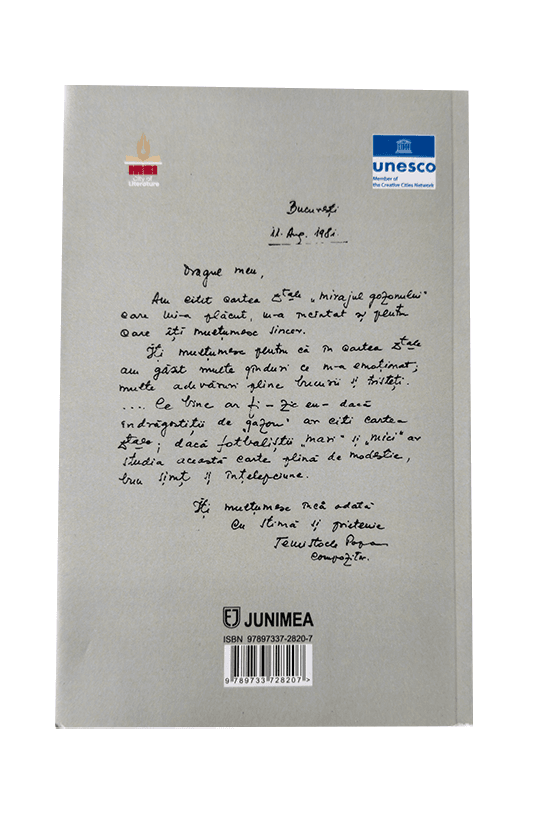 IAȘI
City of
Literature
unesco
Member of
the Creative Cities Network
București
11. Aug. 1981.
Dragul meu,
Am citit cartea D-tale „mirajul gazonului"
care mi-a plăcut, m-a încîntat și pentru
care îți mulțumesc sincer.
Îți mulțumesc pentru că în cartea D-tale
am găsit multe gînduri ce m-a emoționat,
multe adevăruri pline bucurii și tristeți.
.... Ce bine ar fi – zic eu – dacă
îndrăgostiții de „gazon" ar citi cartea
D-tale; dacă fotbaliștii „mari" și „mici" ar
studia această carte plină de modestie,
bun simț și înțelepciune.
Îți mulțumesc încă odată
Cu stimă și prietenie
Temistocle Popa
compozitor.
JUNIMEA
ISBN 97897337-2820-7
9 789733 728207 >